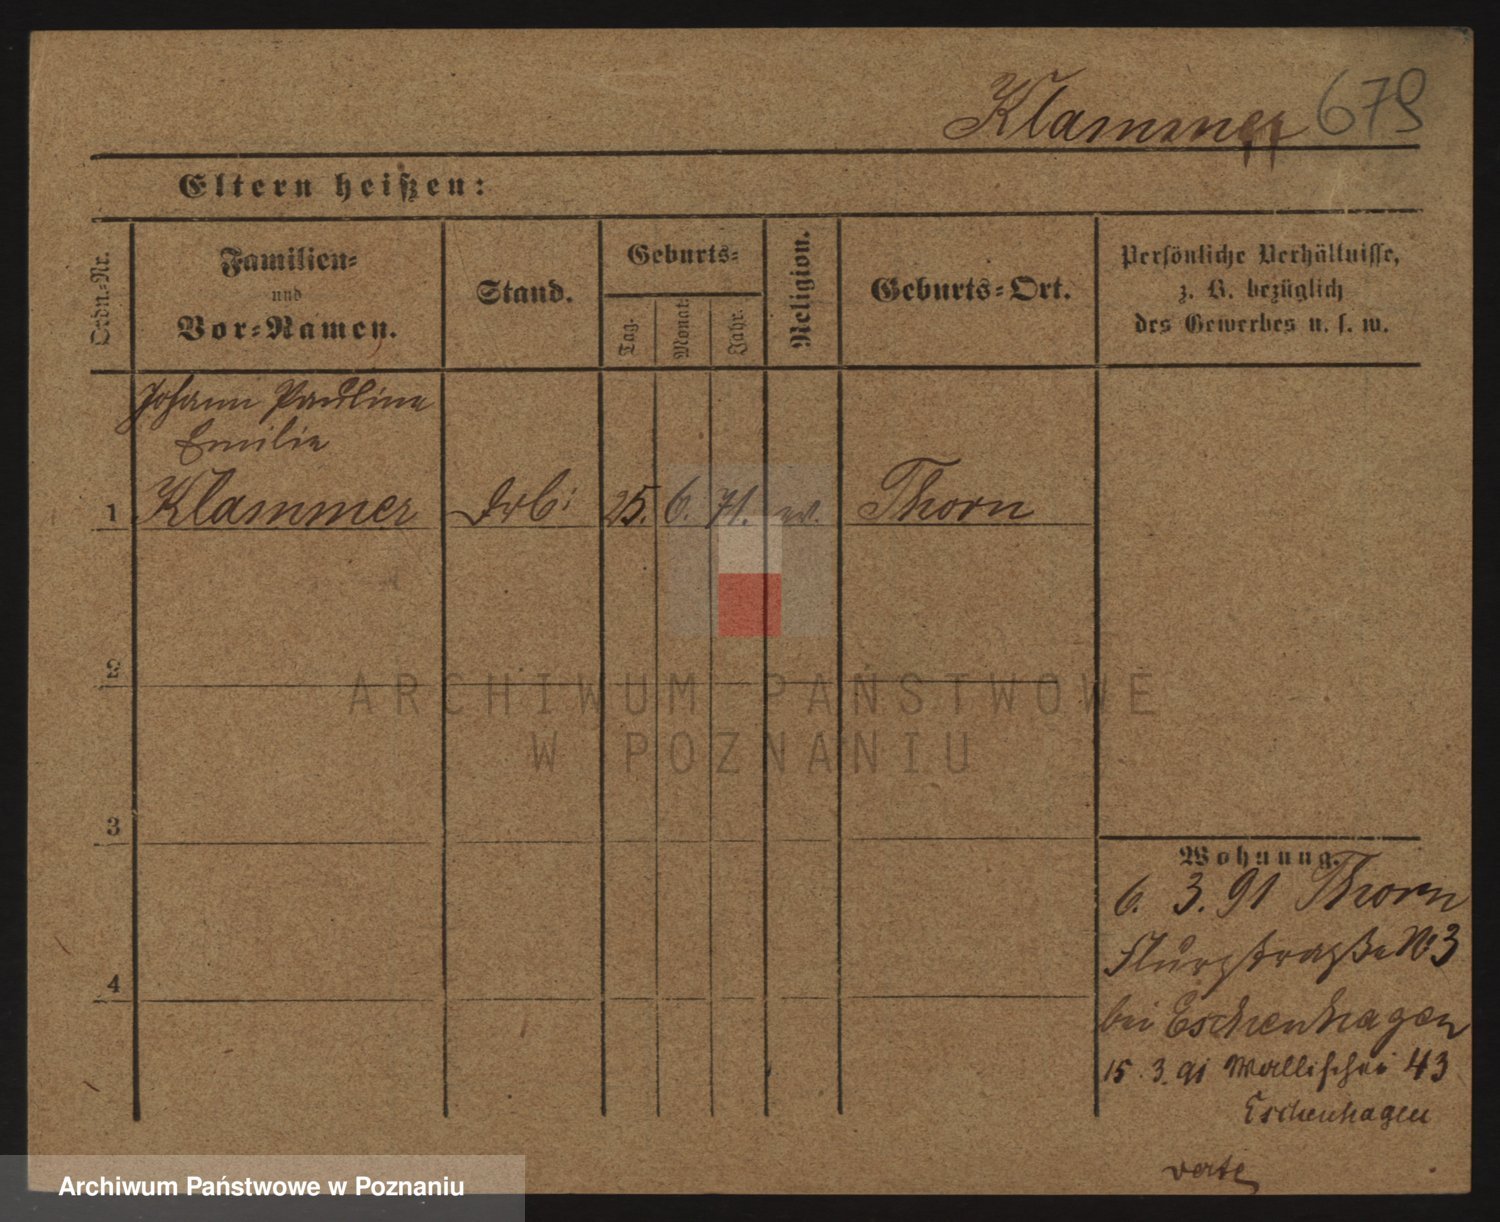 Klammer 679
Eltern heißen:
Ordn.-Nr.
Familien-
und
Vor-Namen.
Stand.
Geburts-
Tag.
Monat.
Jahr.
Religion.
Geburts-Ort.
Persönliche Verhältnisse,
z. B. bezüglich
des Gewerbes u. s. w.
Johann Pauline
Emilie
1 Klammer Arb: 25. 6. 71. ev. Thorn
2
ARCHIWUM PAŃSTWOWE
W POZNANIU
3
Wohnung.
6. 3. 91 Thorn
straße No 3
4
bei Eschenhagen
15. 3. 91 Wallischei 43
Eschenhagen
verte
Archiwum Państwowe w Poznaniu